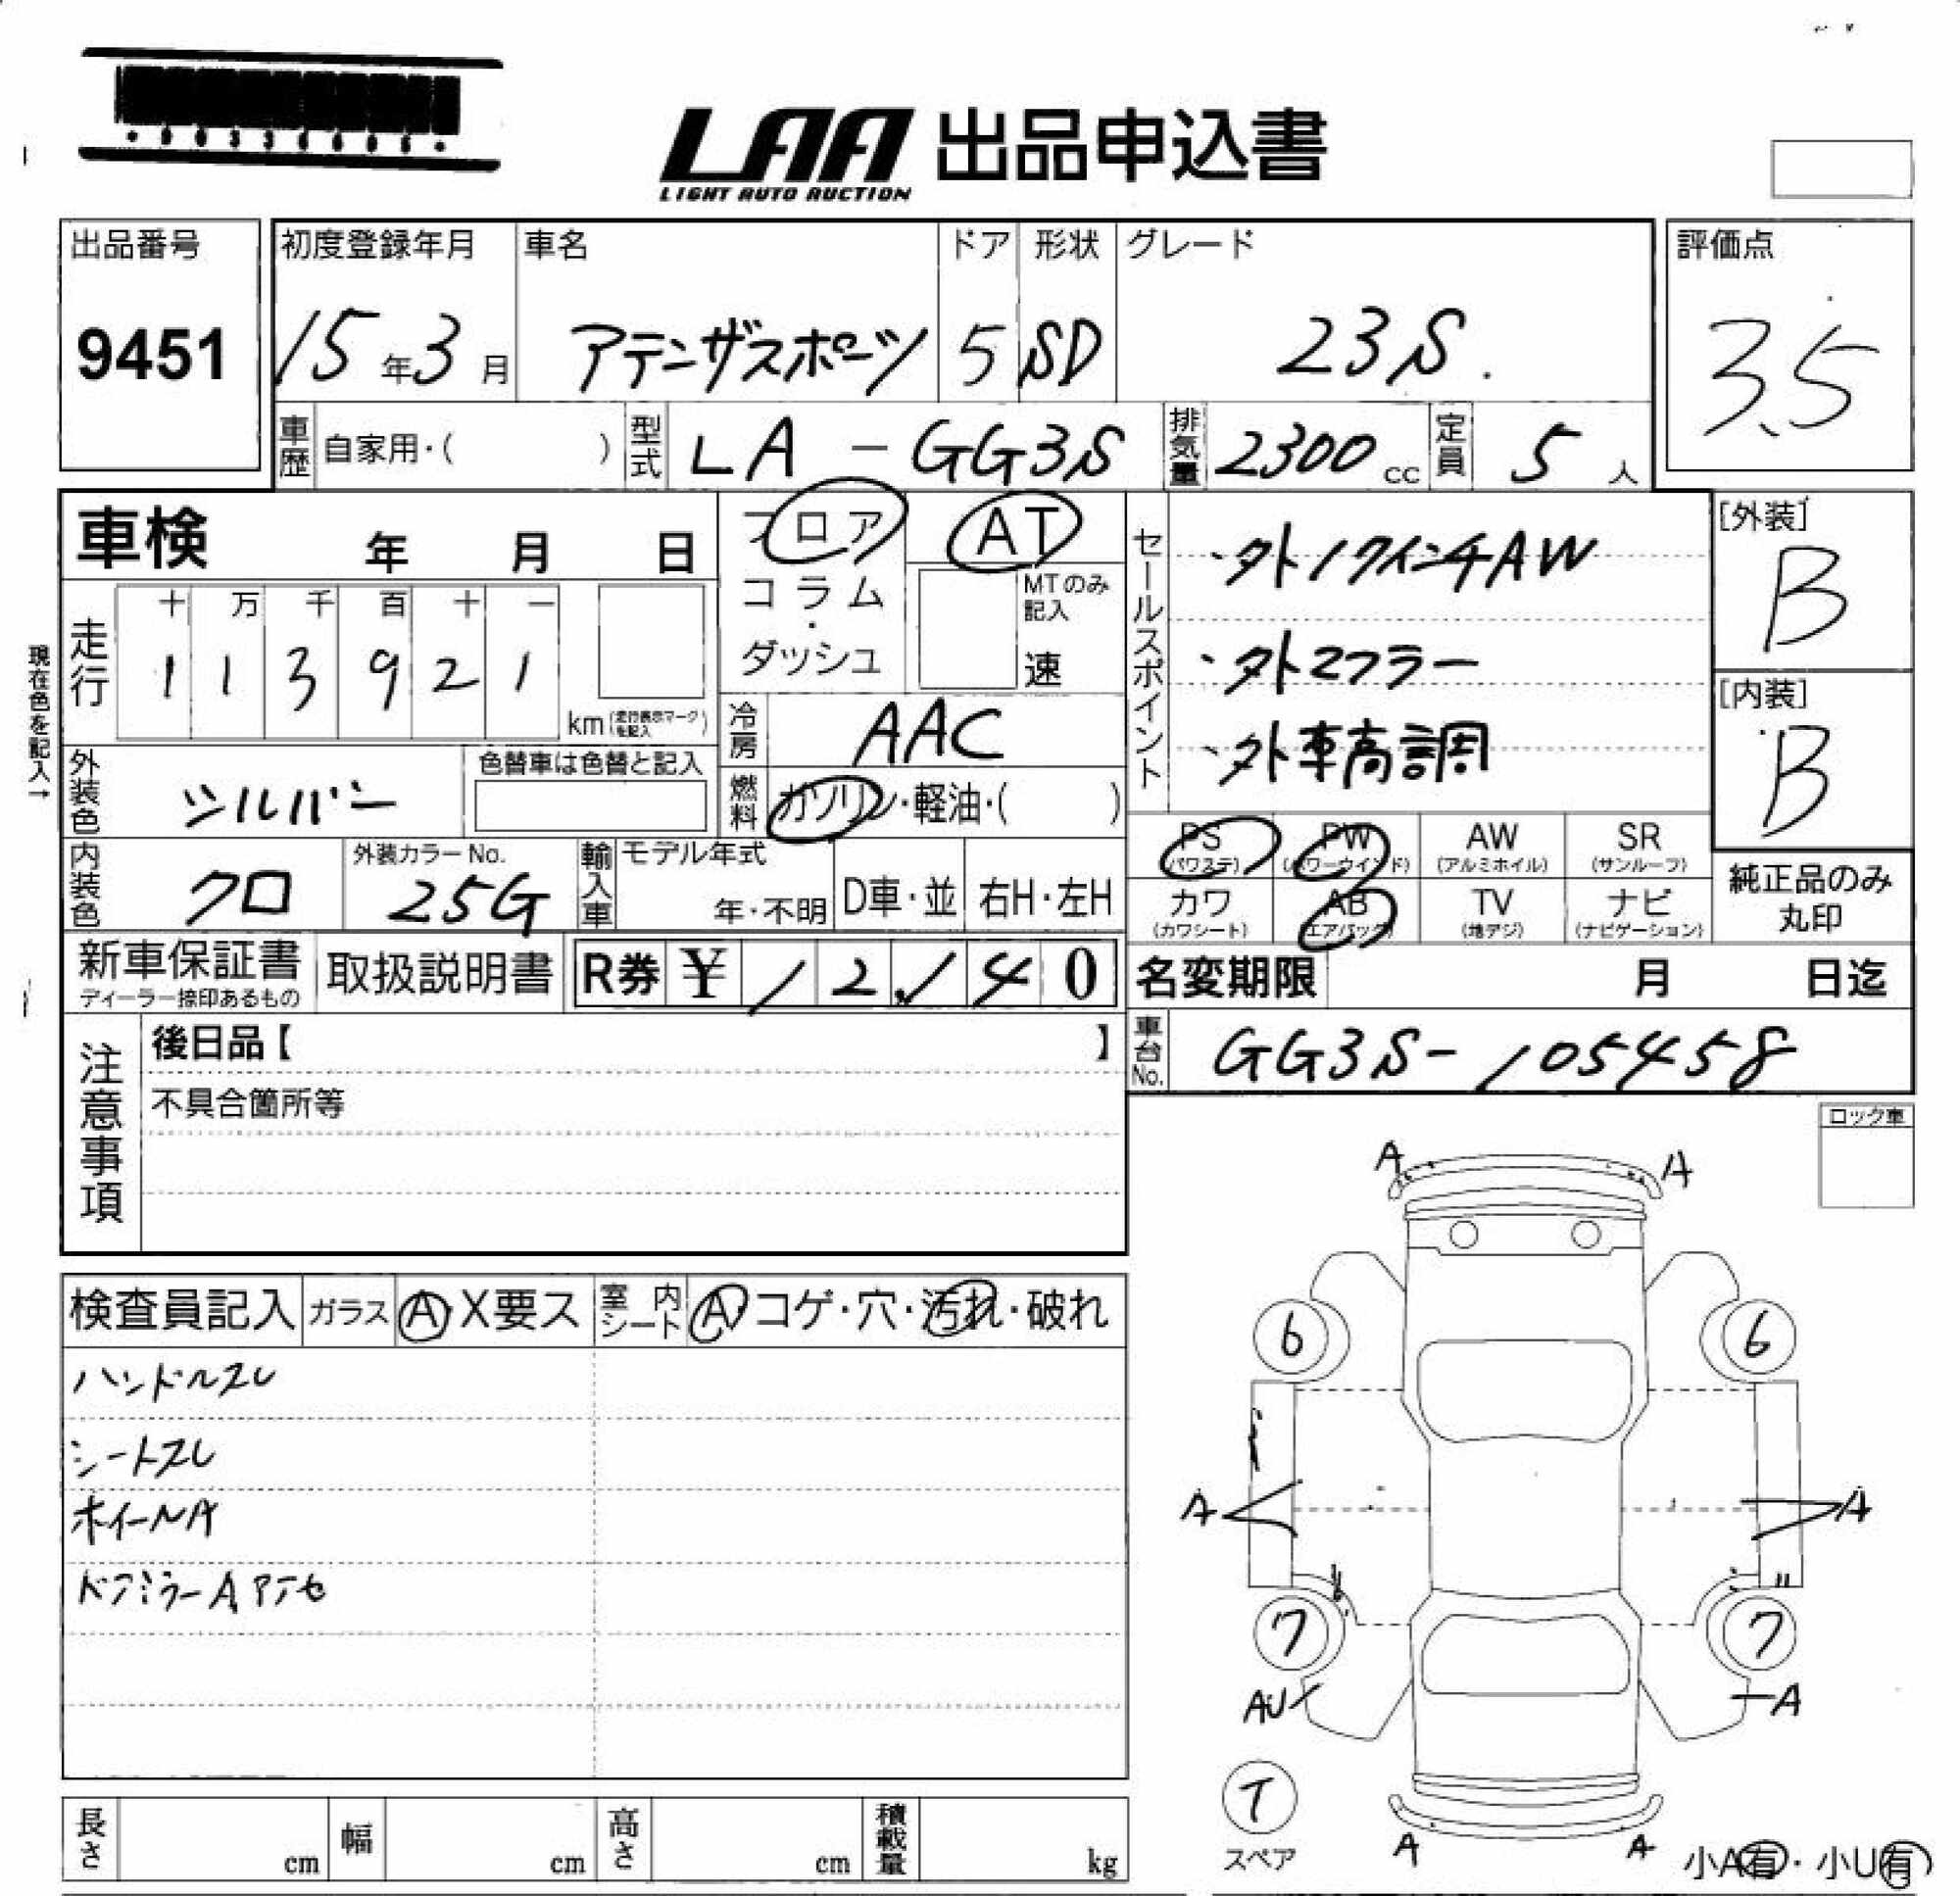 LAA 出品申込書
LIGHT AUTO AUCTION
出品番号
9451
初度登録年月
15年3月
車名
アテンザスポーツ
ドア
5
形状
SD
グレード
23S.
評価点
3.5
車歴 自家用・( )
型式 LA-GG3S
排気量 2300cc
定員 5人
車検 年 月 日
フロア
コラム・
ダッシュ
AT
MTのみ記入
速
セールスポイント
・外17インチAW
・外マフラー
・外車高調
[外装]
B
[内装]
B
現在色を記入→
走行
十 万 千 百 十 一
1 1 3 9 2 1
km(走行表示マークを記入)
冷房 AAC
燃料 ガソリン・軽油・( )
外装色 シルバー
色替車は色替と記入
内装色 クロ
外装カラーNo.
25G
輸入車
モデル年式
年・不明
D車・並
右H・左H
PS
(パワステ)
PW
(パワーウインド)
AW
(アルミホイル)
SR
(サンルーフ)
カワ
(カワシート)
AB
(エアバッグ)
TV
(地デジ)
ナビ
(ナビゲーション)
純正品のみ
丸印
新車保証書
ディーラー捺印あるもの
取扱説明書
R券 ¥ 12,140
名変期限 月 日迄
車台No. GG3S-105458
注意事項
後日品【 】
不具合箇所等
ロック車
検査員記入
ガラス A・X要ス
室内シート A コゲ・穴・汚れ・破れ
ハンドルスレ
シートスレ
ホイールA
ドアミラーAアテセ
A A
6 6
A A
7 7
AU A
T
スペア
A A
小A有・小U有
長さ cm
幅 cm
高さ cm
積載量 kg